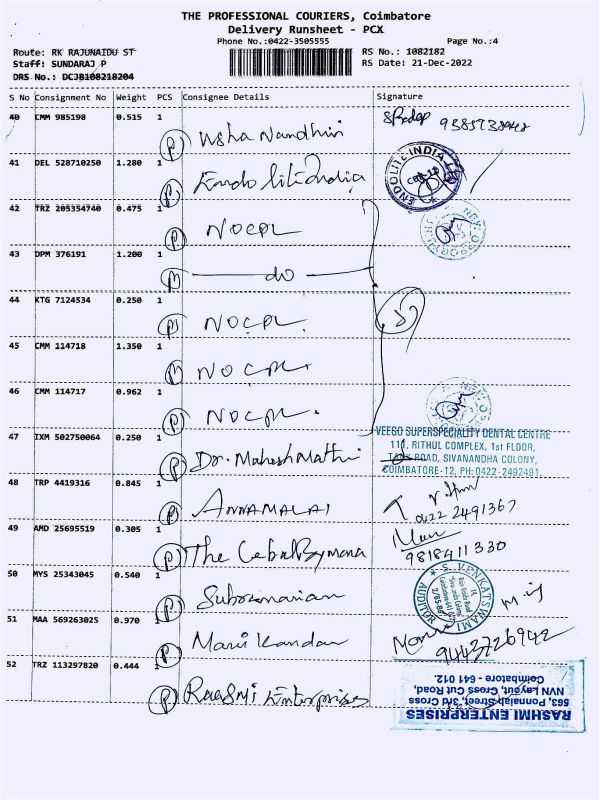 THE PROFESSIONAL COURIERS, Coimbatore
Delivery Runsheet - PCX
Phone No.:0422-3505555 Page No.:4
Route: RK RAJUNAIDU ST RS No.: 1082182
Staff: SUNDARAJ P RS Date: 21-Dec-2022
DRS No.: DCJB108218204
S No Consignment No Weight PCS Consignee Details Signature
40 CMM 985198 0.515 1
P Usha Nandhini
41 DEL 528710250 1.280 1
P Endo lite India ENDOLITE INDIA
42 TRZ 205354740 0.475 1
P NOCPL
43 DPM 376191 1.200 1
do
44 KTG 7124534 0.250 1
NOCPL
45 CMM 114718 1.350 1
NOCPL
46 CMM 114717 0.962 1
P NOCPL.
VEEGO SUPERSPECIALITY DENTAL CENTRE
47 IXM 502750064 0.250 1
111, RITHUL COMPLEX, 1st FLOOR,
P Dr. Mahesh Mathi ROAD, SIVANANDHA COLONY,
COIMBATORE-12, PH:0422-2492491.
48 TRP 4419316 0.845 1
P ANNAMALAI 0422 2491367
49 AMD 25695519 0.305 1
P The 9818411330
50 MYS 25343045 0.540 1
P Subramanian S. VENKATSWAMI AUDITOR
51 MAA 569263025 0.970 1
P Mani Kandan 9443726942
52 TRZ 113297820 0.444 1
P Raashmi Enterprises
RASHMI ENTERPRISES
563, Ponnaiah Street, 3rd Cross
NVN Layout, Cross Cut Road,
Coimbatore - 641 012.